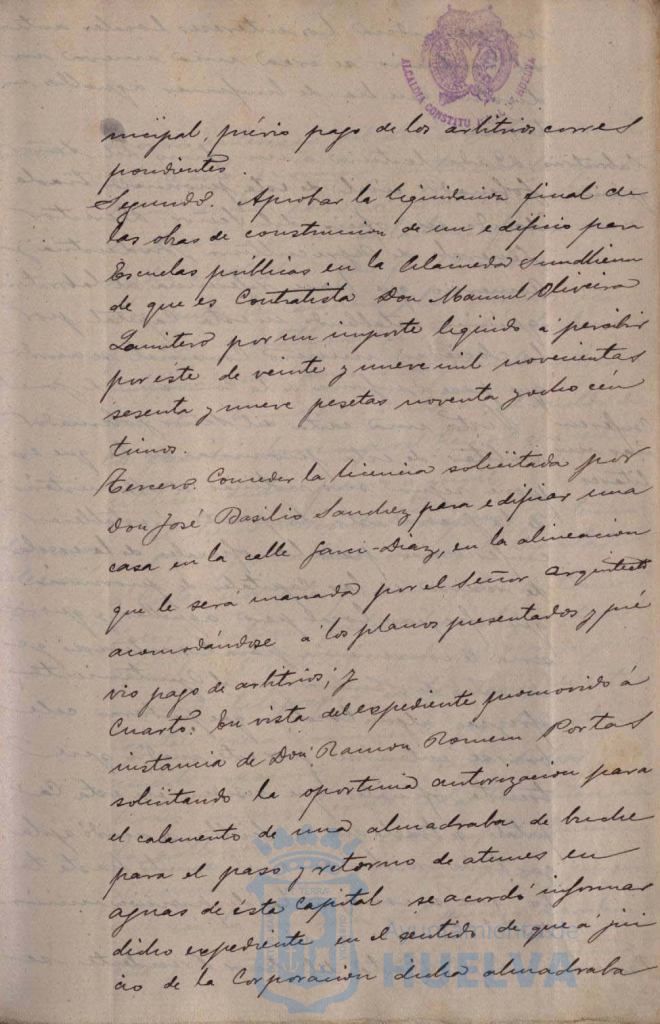 ALCALDIA CONSTITU HUELVA
nicipal, prévio pago de los arbitrios corres
pondientes.
Segundo. Aprobar la liquidacion final de
las obras de construcion de un edificio para
Escuelas públicas en la Alameda Sundheim
de que es Contratista Don Manuel Oliveira
por un importe liquido á percibir
por este de veinte y nueve mil novecientas
sesenta y nueve pesetas noventa y ocho cén
timos.
Tercero. Conceder la licencia solicitada por
Don José Basilio Sanchez para edificar una
casa en la calle Garci-Diaz, en la alineacion
que le será marcada por el Señor Arquitecto
acomodándose á los planos presentados y pré
vio pago de arbitrios; y
Cuarto: En vista del expediente promovido á
instancia de Don Ramon Romeu Portas
solicitando la oportuna autorizacion para
el calamento de una almadraba de buche
para el paso y retorno de atunes en
aguas de ésta Capital se acordó informar
dicho expediente en el sentido de que á jui
cio de la Corporacion dicha almadraba
TERRA
Ayuntamiento de
HUELVA